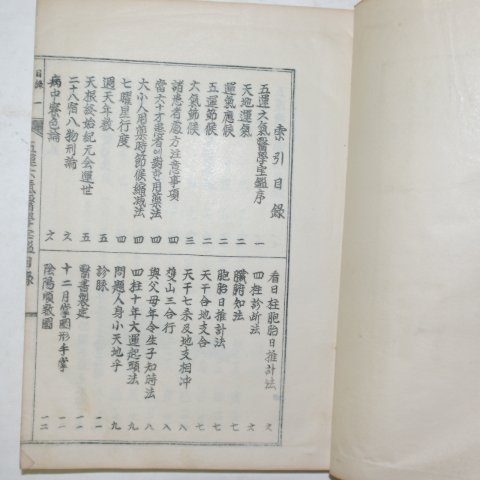 索引目錄
五運六氣醫學宝鑑序 一
天地運氣 二
運氣應候 二
五運節候 二
六氣節候 三
諸患者處方注意事項 四
當六十才患者의 對한 用藥法 四
大小人用藥時節候縮減法 四
七曜星行度 四
週天年數 五
天根終始紀元会運世 五
二十八宿八物刑論 六
病中察色論 六
看日柱胞胎日推計法 六
四柱診断法 六
臟腑知法 七
胞胎日推計法 七
天干合地支合 七
天干七杀及地支相冲 八
雙山三合行 八
與父母年令生子知時法 八
四柱十年大運起頭法 九
問題人身小天地乎 九
診脉 一一
醫書製定 一一
十二月掌圖形手掌 一一
陰陽順数圖 一二
目錄 一